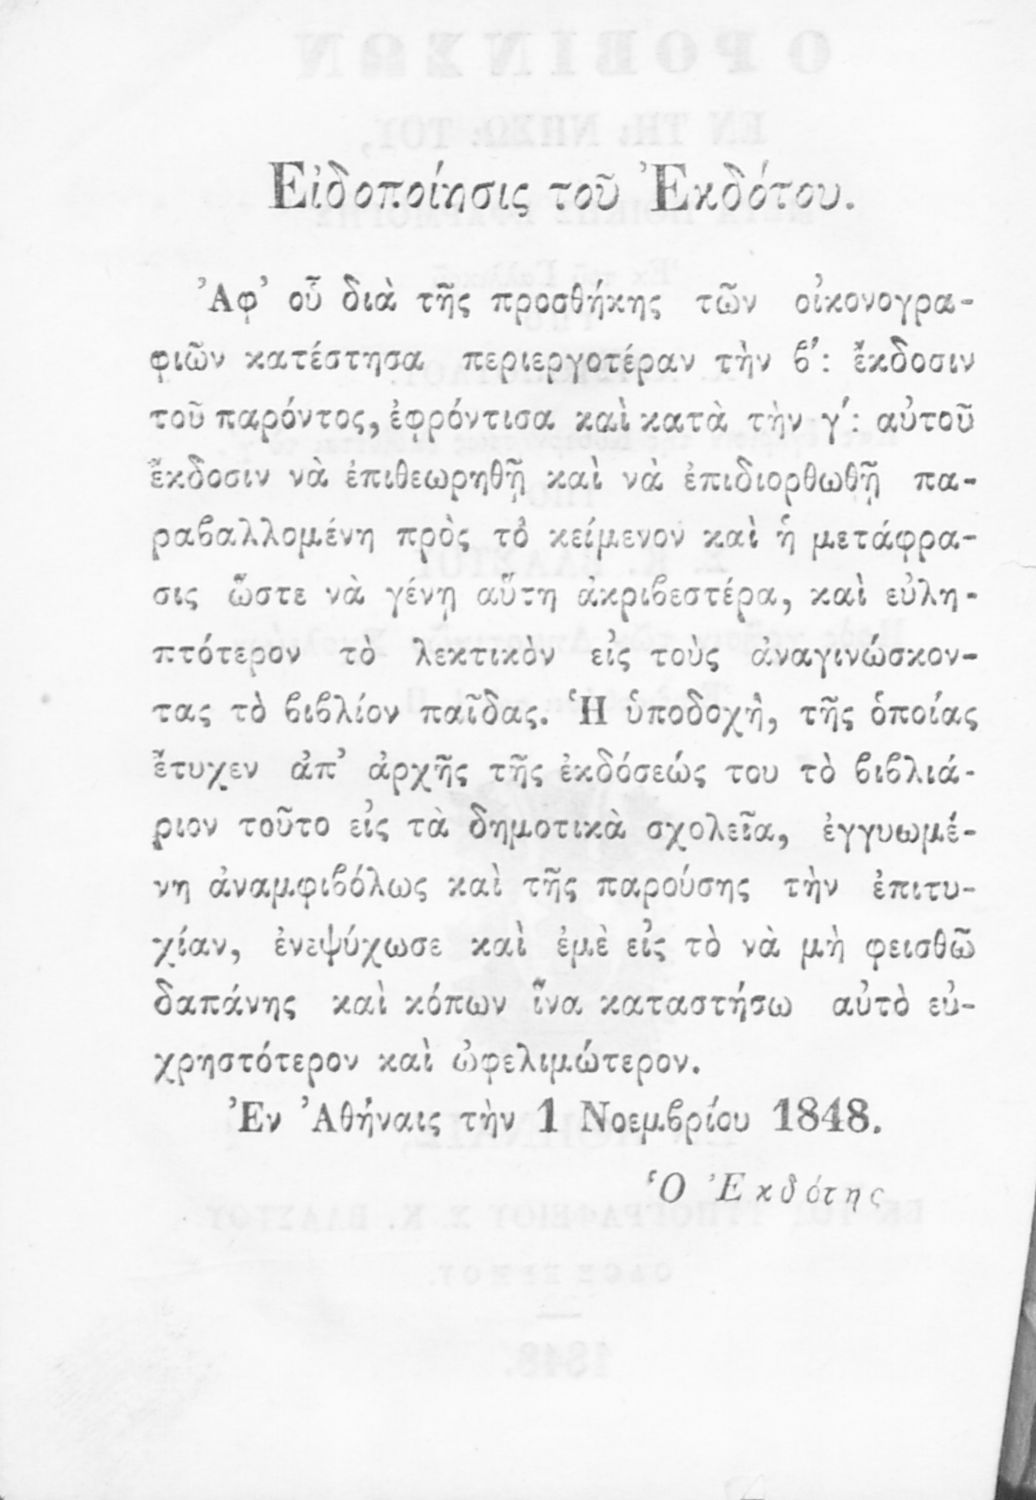 Εἰδοποίησις τοῦ Ἐκδότου.
Ἀφ' οὗ διὰ τῆς προσθήκης τῶν οἰκονογρα-
φιῶν κατέστησα περιεργοτέραν τὴν β': ἔκδοσιν
τοῦ παρόντος, ἐφρόντισα καὶ κατὰ τὴν γ': αὐτοῦ
ἔκδοσιν νὰ ἐπιθεωρηθῇ καὶ νὰ ἐπιδιορθωθῇ πα-
ραβαλλομένη πρὸς τὸ κείμενον καὶ ἡ μετάφρα-
σις ὥστε νὰ γένῃ αὕτη ἀκριβεστέρα, καὶ εὐλη-
πτότερον τὸ λεκτικὸν εἰς τοὺς ἀναγινώσκον-
τας τὸ βιβλίον παῖδας. Ἡ ὑποδοχὴ, τῆς ὁποίας
ἔτυχεν ἀπ' ἀρχῆς τῆς ἐκδόσεώς του τὸ βιβλιά-
ριον τοῦτο εἰς τὰ δημοτικὰ σχολεῖα, ἐγγυωμέ-
νη ἀναμφιβόλως καὶ τῆς παρούσης τὴν ἐπιτυ-
χίαν, ἐνεψύχωσε καὶ ἐμὲ εἰς τὸ νὰ μὴ φεισθῶ
δαπάνης καὶ κόπων ἵνα καταστήσω αὐτὸ εὐ-
χρηστότερον καὶ ὠφελιμώτερον.
Ἐν Ἀθήναις τὴν 1 Νοεμβρίου 1848.
Ὁ Ἐκδότης